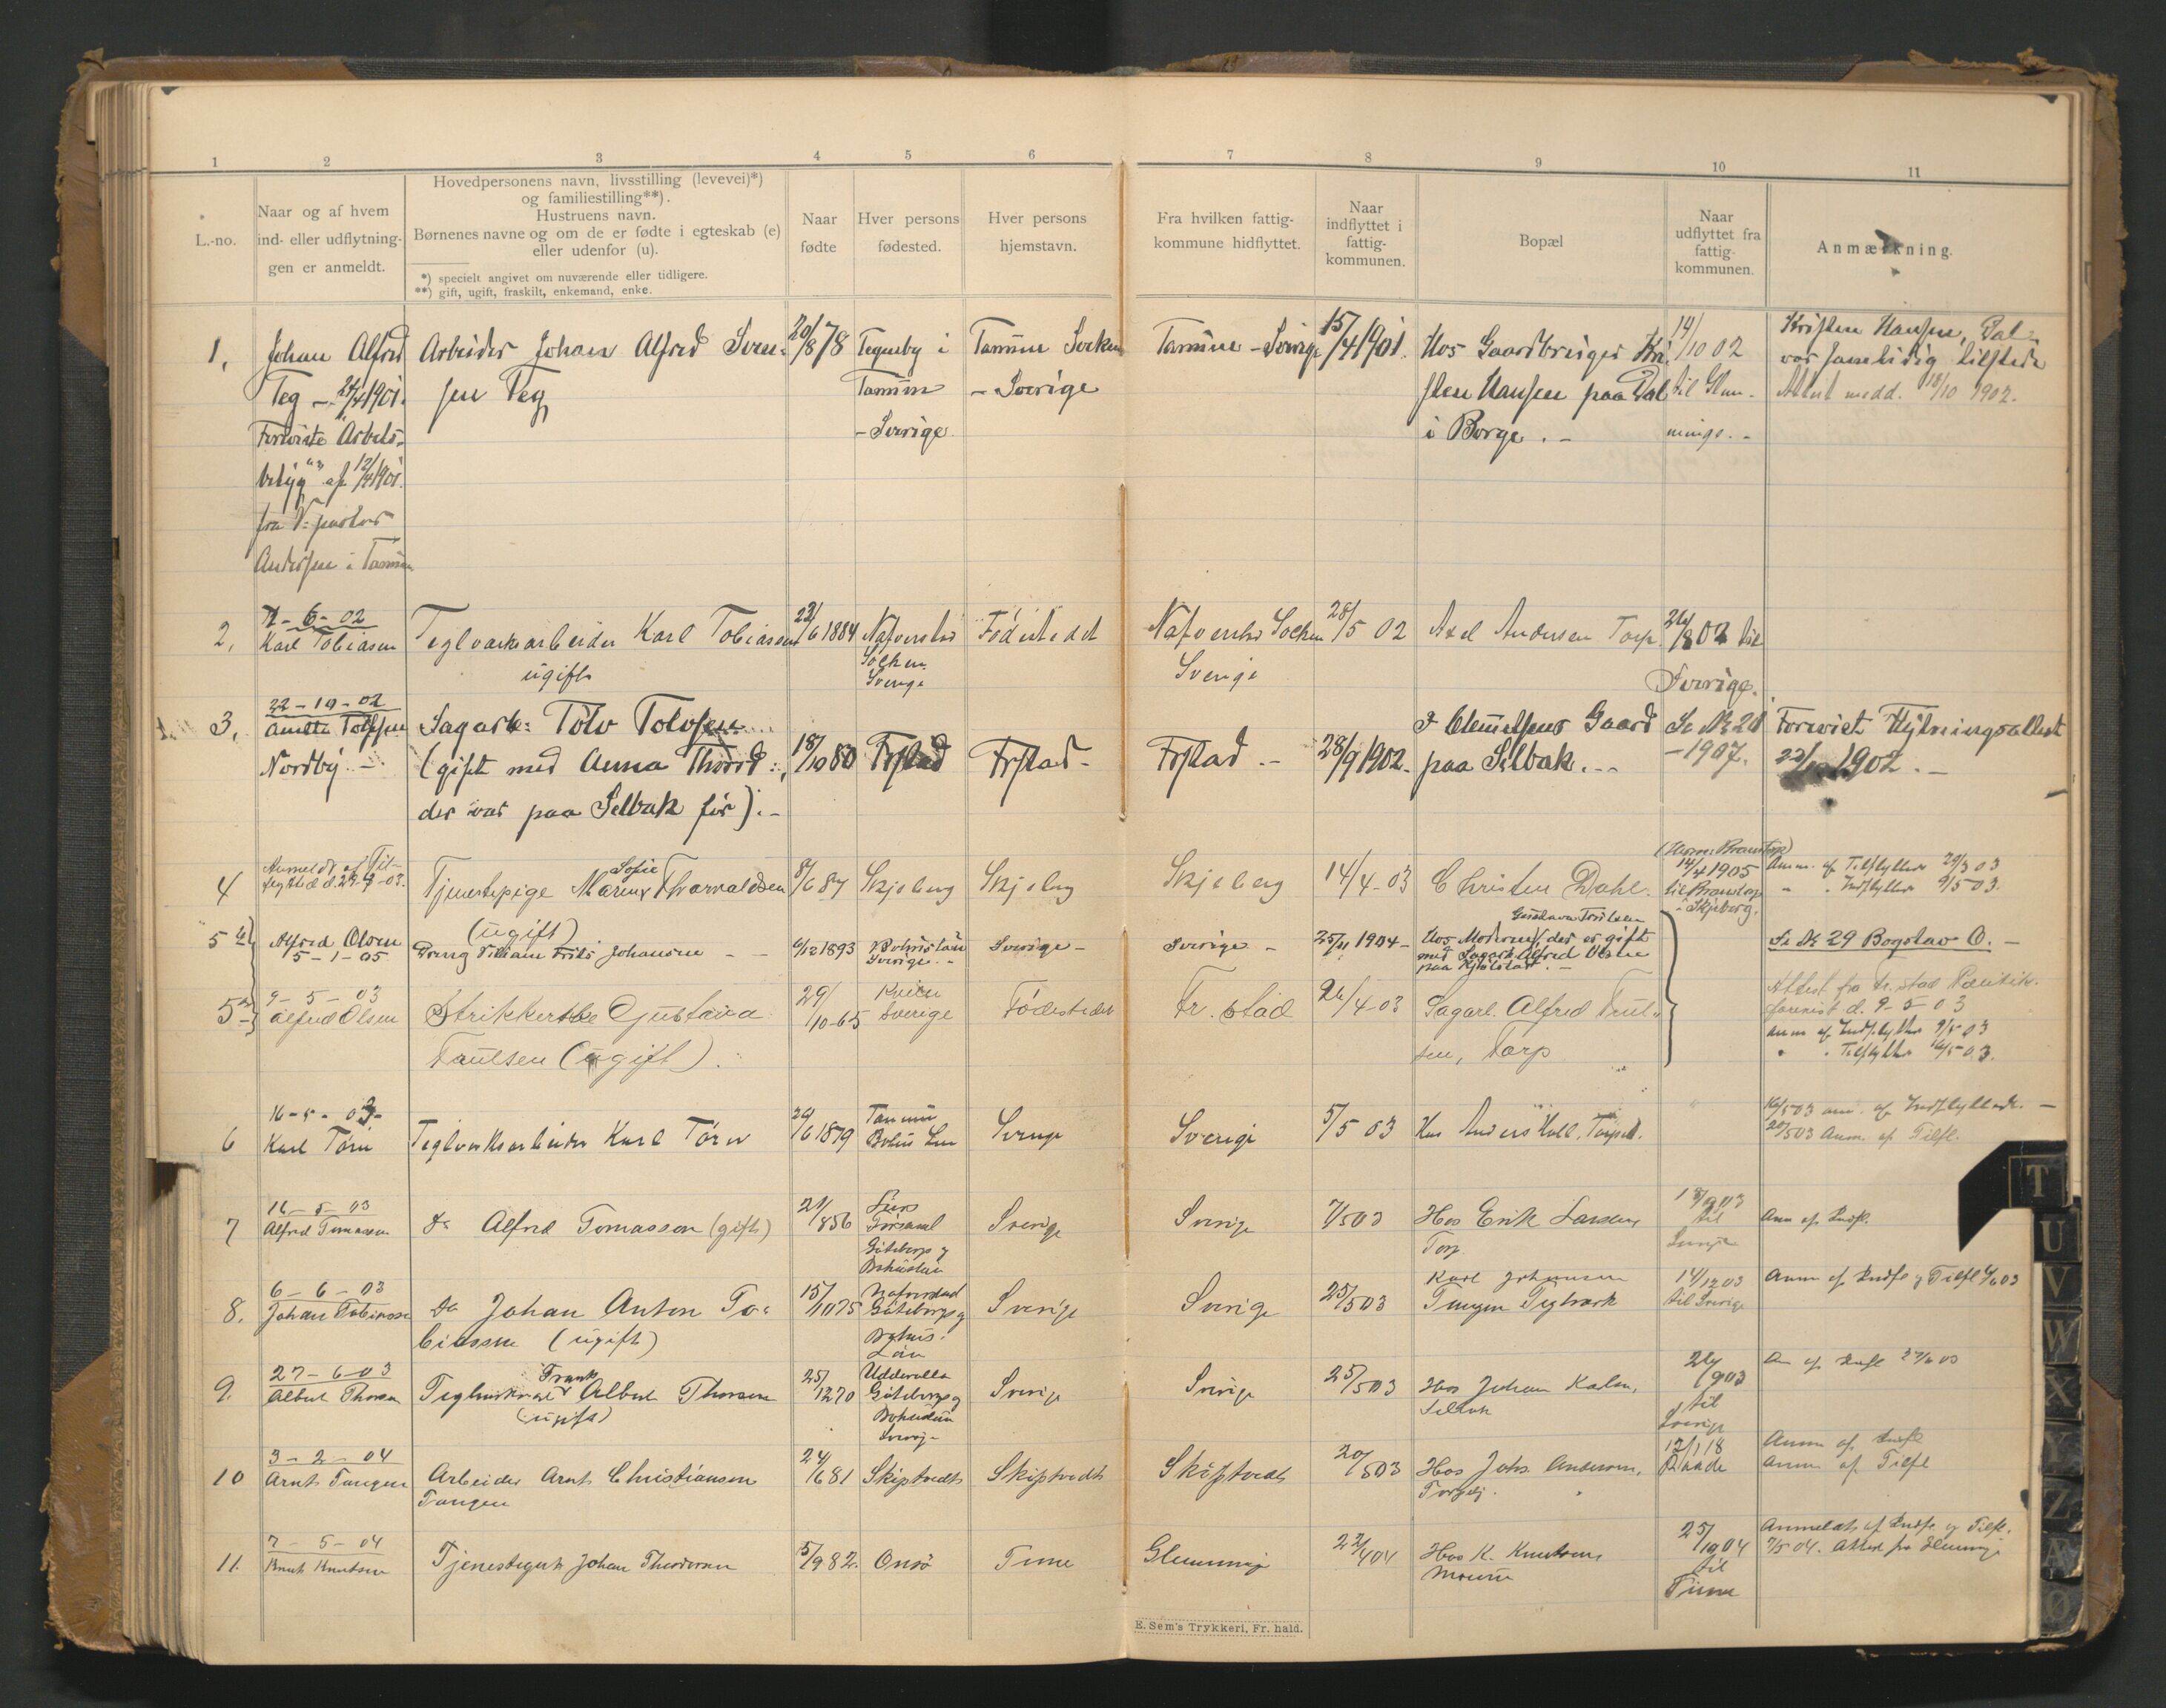 1 2 3 4 5 6 7 8 9 10 11
L.-no.
Naar og af hvem
ind- eller udflytnin-
gen er anmeldt.
Hovedpersonens navn, livsstilling (levevei)*)
og familiestilling**).
Hustruens navn.
Børnenes navne og om de er fødte i egteskab (e)
eller udenfor (u).
*) specielt angivet om nuværende eller tidligere.
**) gift, ugift, fraskilt, enkemand, enke.
Naar
fødte
Hver persons
fødested.
Hver persons
hjemstavn.
Fra hvilken fattig-
kommune hidflyttet.
Naar
indflyttet i
fattig-
kommunen.
Bopæl
Naar
udflyttet fra
fattig-
kommunen.
Anmærkning.
1,
Johan Alfred
Teg - 24/4 1901.
Foreviste "Arbets-
betyg" af 12/4 1901.
fra V. pastor
Andersen i Tanum
Arbeider Johan Alfred Sven-
sen Teg
20/8 78
Tegneby i
Tanum
- Sverige
Tanum Socken
- Sverige
Tanum - Sverige
15/4 1901.
Hos Gaardbruger Kri-
sten Hansen paa Dal
i Borge. -
14/10 02
til Glem-
minge. -
Kristen Hansen, Dal
var samtidig tilstede
Attest medd. 18/10 1902.
2,
7-6-02
Karl Tobiasen
Teglverksarbeider Karl Tobiasen
ugift
23/6 1884
Nafverstad
Socken
Sverige
Fødestedet
Nafverstad Socken
Sverige
28/5 02
Axel Andersen Torp.
24/8 02 til
Sverige.
3,
22-10-02
Anetta Tolfsen
Nordby. -
Sagarb: Tolv Tolvsen
(gift med Anna Thorvd:,
der var paa Selbak før). -
18/10 80
Frstad
Frstad -
Frstad. -
28/9 1902. -
I Clemetsens Gaard
paa Selbak. -
Se № 20
- 1907.
Forevist Flytningsattest
22/10 1902. -
4
Anmeldt af Til-
flytted d. 29-4-03.
Tjenestepige Maren Sofie Thorvaldsen
(ugift)
8/6 87
Skjeberg
Skjeberg
Skjeberg
14/4-03
Christen Dahl.
14/4 1905
til Brandtorp
i Skjeberg.
Anm. af Tilflytter 29/3 03
" . Indflytter 9/5 03.
5 b
Alfred Olsen
5-1-05
Dreng Villiam Frits Johansen - -
6/12 1893
Bohuslän
Sverige. -
Sverige -
Sverige -
25/11 1904 -
Gustava Truلsen
Hos Moderen, der er gift
med Sagarb. Alfred Olsen
paa Hjølstad. -
Se № 29 Bogstav O. -
5 a
9-5-03
Alfred Olsen
Strikkerske Gustava
Trulsen (ugift).
29/10-65
Sverige
Fødestedet
Fr. stad
26/4-03
Sagarb. Alfred Trul-
sen, Torp
Attest fra Fr. stad
forevist d. 9-5-03
anm af Indflytter 9/5 03
" . Tilflytter 16/5 03.
6
16-5-03
Karl Törn
Teglverksarbeider Karl Törn
29/6 1879
Tanum
Bohus Len
Sverige
Sverige
5/5 03
Hos Anders Hall, Torp.
16/5 03 anm. af Indflyttede. -
20/5 03 Anm. af Tilfl.
7
16-5-03
Alfred Tomassen
Do Alfred Tomasson (gift)
29/8 56
Församl
Göteborg og
Bohuslän
Sverige
Sverige
7/5 03
Hos Erik Larsen
Torp
18/9 03
til
Sverige
Anm af Indfl.
8.
6-6-03
Johan Tobiassen
Do Johan Anton To-
biassen (ugift)
15/10 75
Nafverstad
Göteborg og
Bohus-
Län
Sverige
Sverige
25/5 03
Karl Johansen
Tangen Teglverk
14/12 03
til Sverige
Anm af Indfl og Tilfl 6/6 03
9.
27-6-03
Albert Thorsen
Teglverksarb Frank Albert Thorsen
(ugift)
25/12 70
Uddevalla
Göteborg og
Bohuslän
Sverig-
Sverige
Sverige
25/5 03
Hos Johan Karlsen,
Selbak
24/9 03
til
Sverige
An af Indfl 27/6 03
10
3-2-04
Arnt Tangen
Arbeider Arnt Christiansen
Tangen
24/6 81
Skiptvedt
Skiptvedt
Skiptvedt
20/5 03
Hos Johs. Andersen,
12/1 18
Raade
Anm af Indfl
Anm af Tilfl
11.
7-5-04
Knut Knutsen
Tjenestegut Johan Theodorsen
5/9 82.
Onsö
Tune
Glemminge
22/4 04
Hos K. Knutsen
Moum
25/10 04
til
Tune
Anmeldt af Indfl. og Tilfl.
7/5 04. Attest fra Glemminge
E. Sem's Trykkeri, Fr. hald.
T
U
V
W
X
Y
Z
Æ
Ø